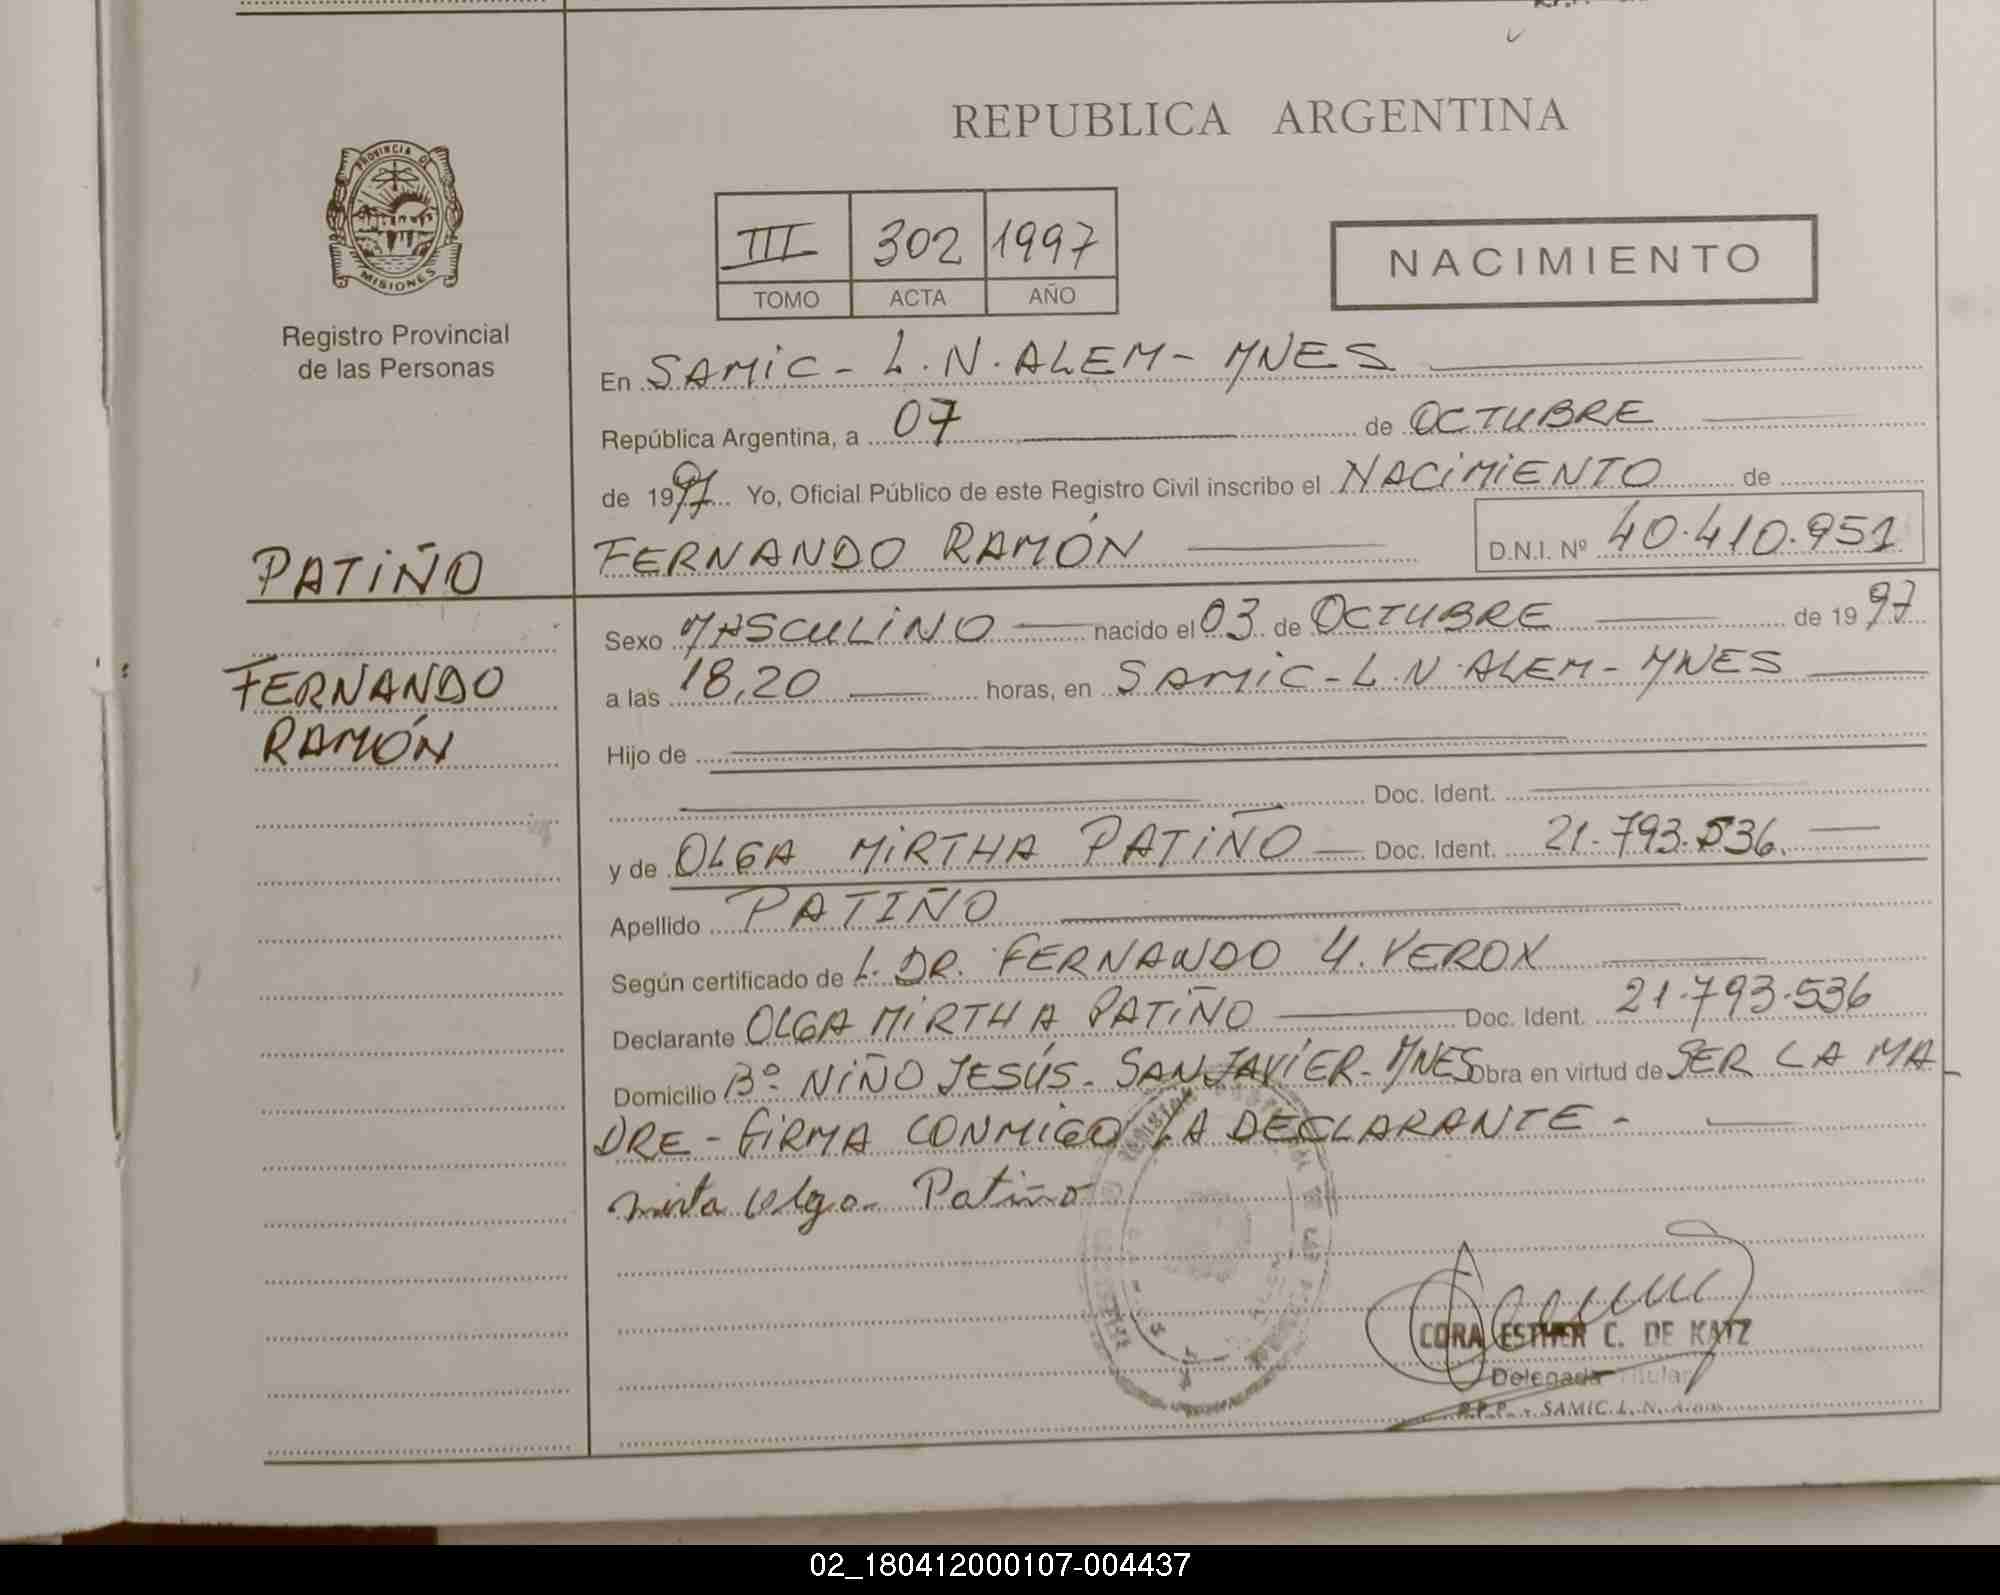 REPUBLICA ARGENTINA
PROVINCIA DE
MISIONES
Registro Provincial
de las Personas
III 302 1997
TOMO ACTA AÑO
NACIMIENTO
En SAMIC - L.N. ALEM - MNES
República Argentina, a 07 de OCTUBRE
de 1997 Yo, Oficial Público de este Registro Civil inscribo el NACIMIENTO de
PATIÑO
FERNANDO RAMÓN D.N.I. Nº 40.410.951
Sexo MASCULINO nacido el 03 de OCTUBRE de 1997
FERNANDO
RAMÓN
a las 18,20 horas, en SAMIC - L.N. ALEM - MNES
Hijo de
Doc. Ident.
y de OLGA MIRTHA PATIÑO Doc. Ident. 21.793.536.
Apellido PATIÑO
Según certificado de L. DR. FERNANDO YEROX
Declarante OLGA MIRTHA PATIÑO Doc. Ident. 21.793.536
Domicilio Bº NIÑO JESÚS - SAN JAVIER - MNES Obra en virtud de SER LA MA
DRE - FIRMA CONMIGO LA DECLARANTE -
Mirta Olga Patiño
CORA ESTHER C. DE KATZ
Delegada Titular
R.P.P. - SAMIC. L. N. Alem
02_180412000107-004437